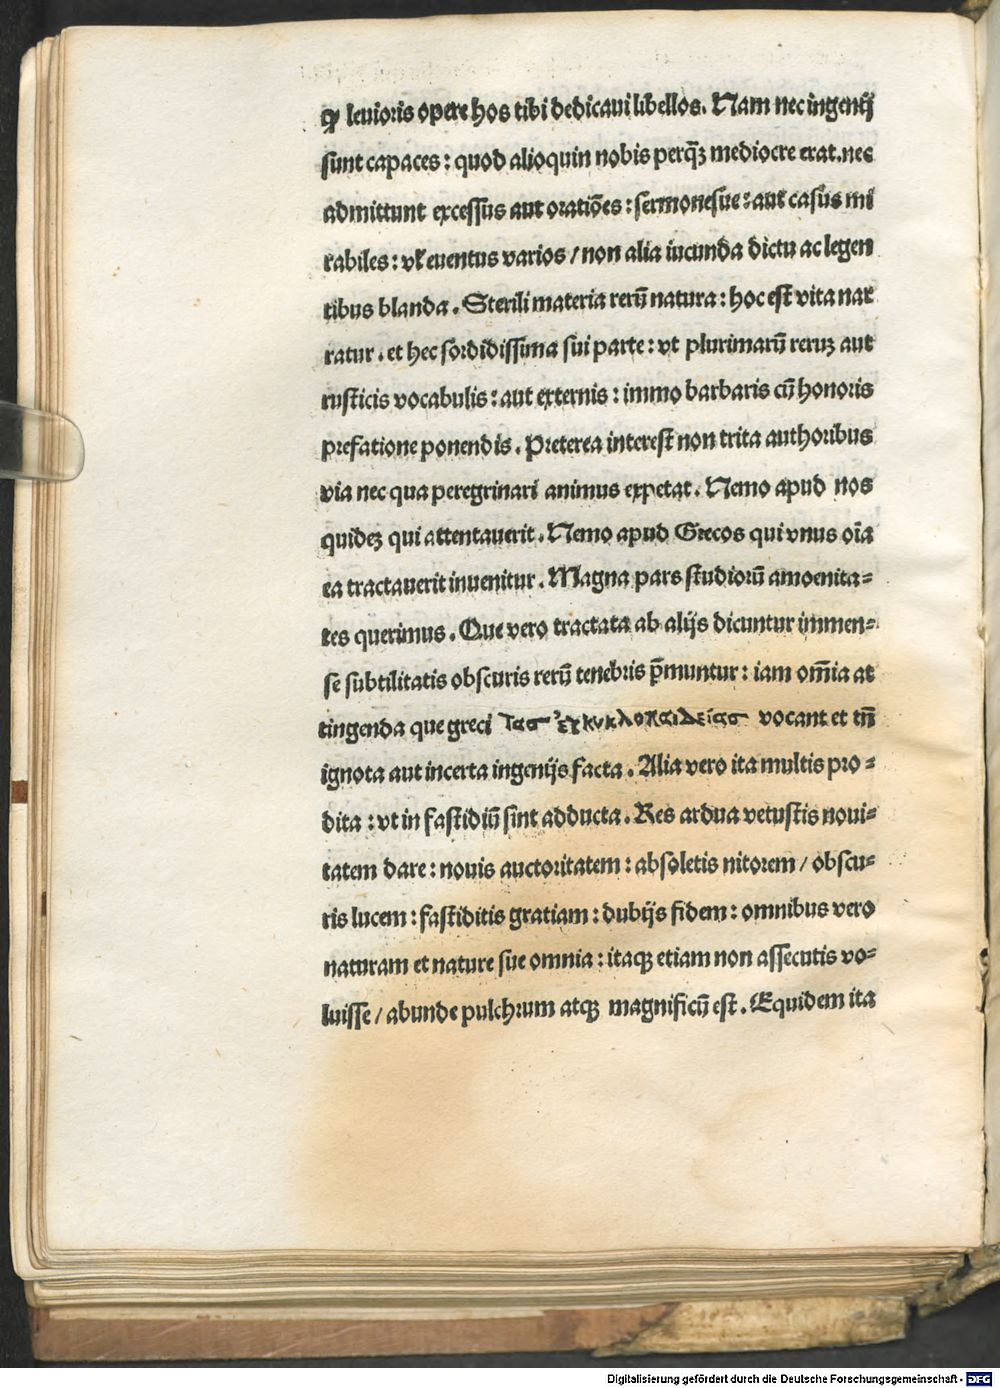 ꝙ leuioris opere hos tibi dedicaui libellos. Nam nec ingenij
sunt capaces: quod alioquin nobis perqȝ̃ mediocre erat. nec
admittunt excessus aut oratiões: sermonesue: aut casus mi
rabiles: vl̕ euentus varios / non alia iucunda dictu ac legen
tibus blanda. Sterili materia rerũ natura: hoc est vita nar
ratur. et hec sordidissima sui parte: vt plurimarũ reruȝ aut
rusticis vocabulis: aut externis: immo barbaris cũ honoris
prefatione ponendis. Preterea interest non trita authoribus
via nec qua peregrinari animus expetat. Nemo apud nos
quideȝ qui attentauerit. Nemo apud Grecos qui vnus oĩa
ea tractauerit inuenitur. Magna pars studiorũ amoenita-
tes querimus. Que vero tractata ab alijs dicuntur immen-
se subtilitatis obscuris rerũ tenebris p̃muntur: iam om̃ia at
tingenda que greci τασ ἐγκυκλοπαιδείασ vocant et tñ
ignota aut incerta ingenijs facta. Alia vero ita multis pro-
dita: vt in fastidiũ sint adducta. Res ardua vetustis noui-
tatem dare: nouis auctoritatem: absoletis nitorem / obscu-
ris lucem: fastiditis gratiam: dubijs fidem: omnibus vero
naturam et nature sue omnia: itaqȝ etiam non assecutis vo-
luisse / abunde pulchrum atqȝ magnificũ est. Equidem ita
Digitalisierung gefördert durch die Deutsche Forschungsgemeinschaft - DFG